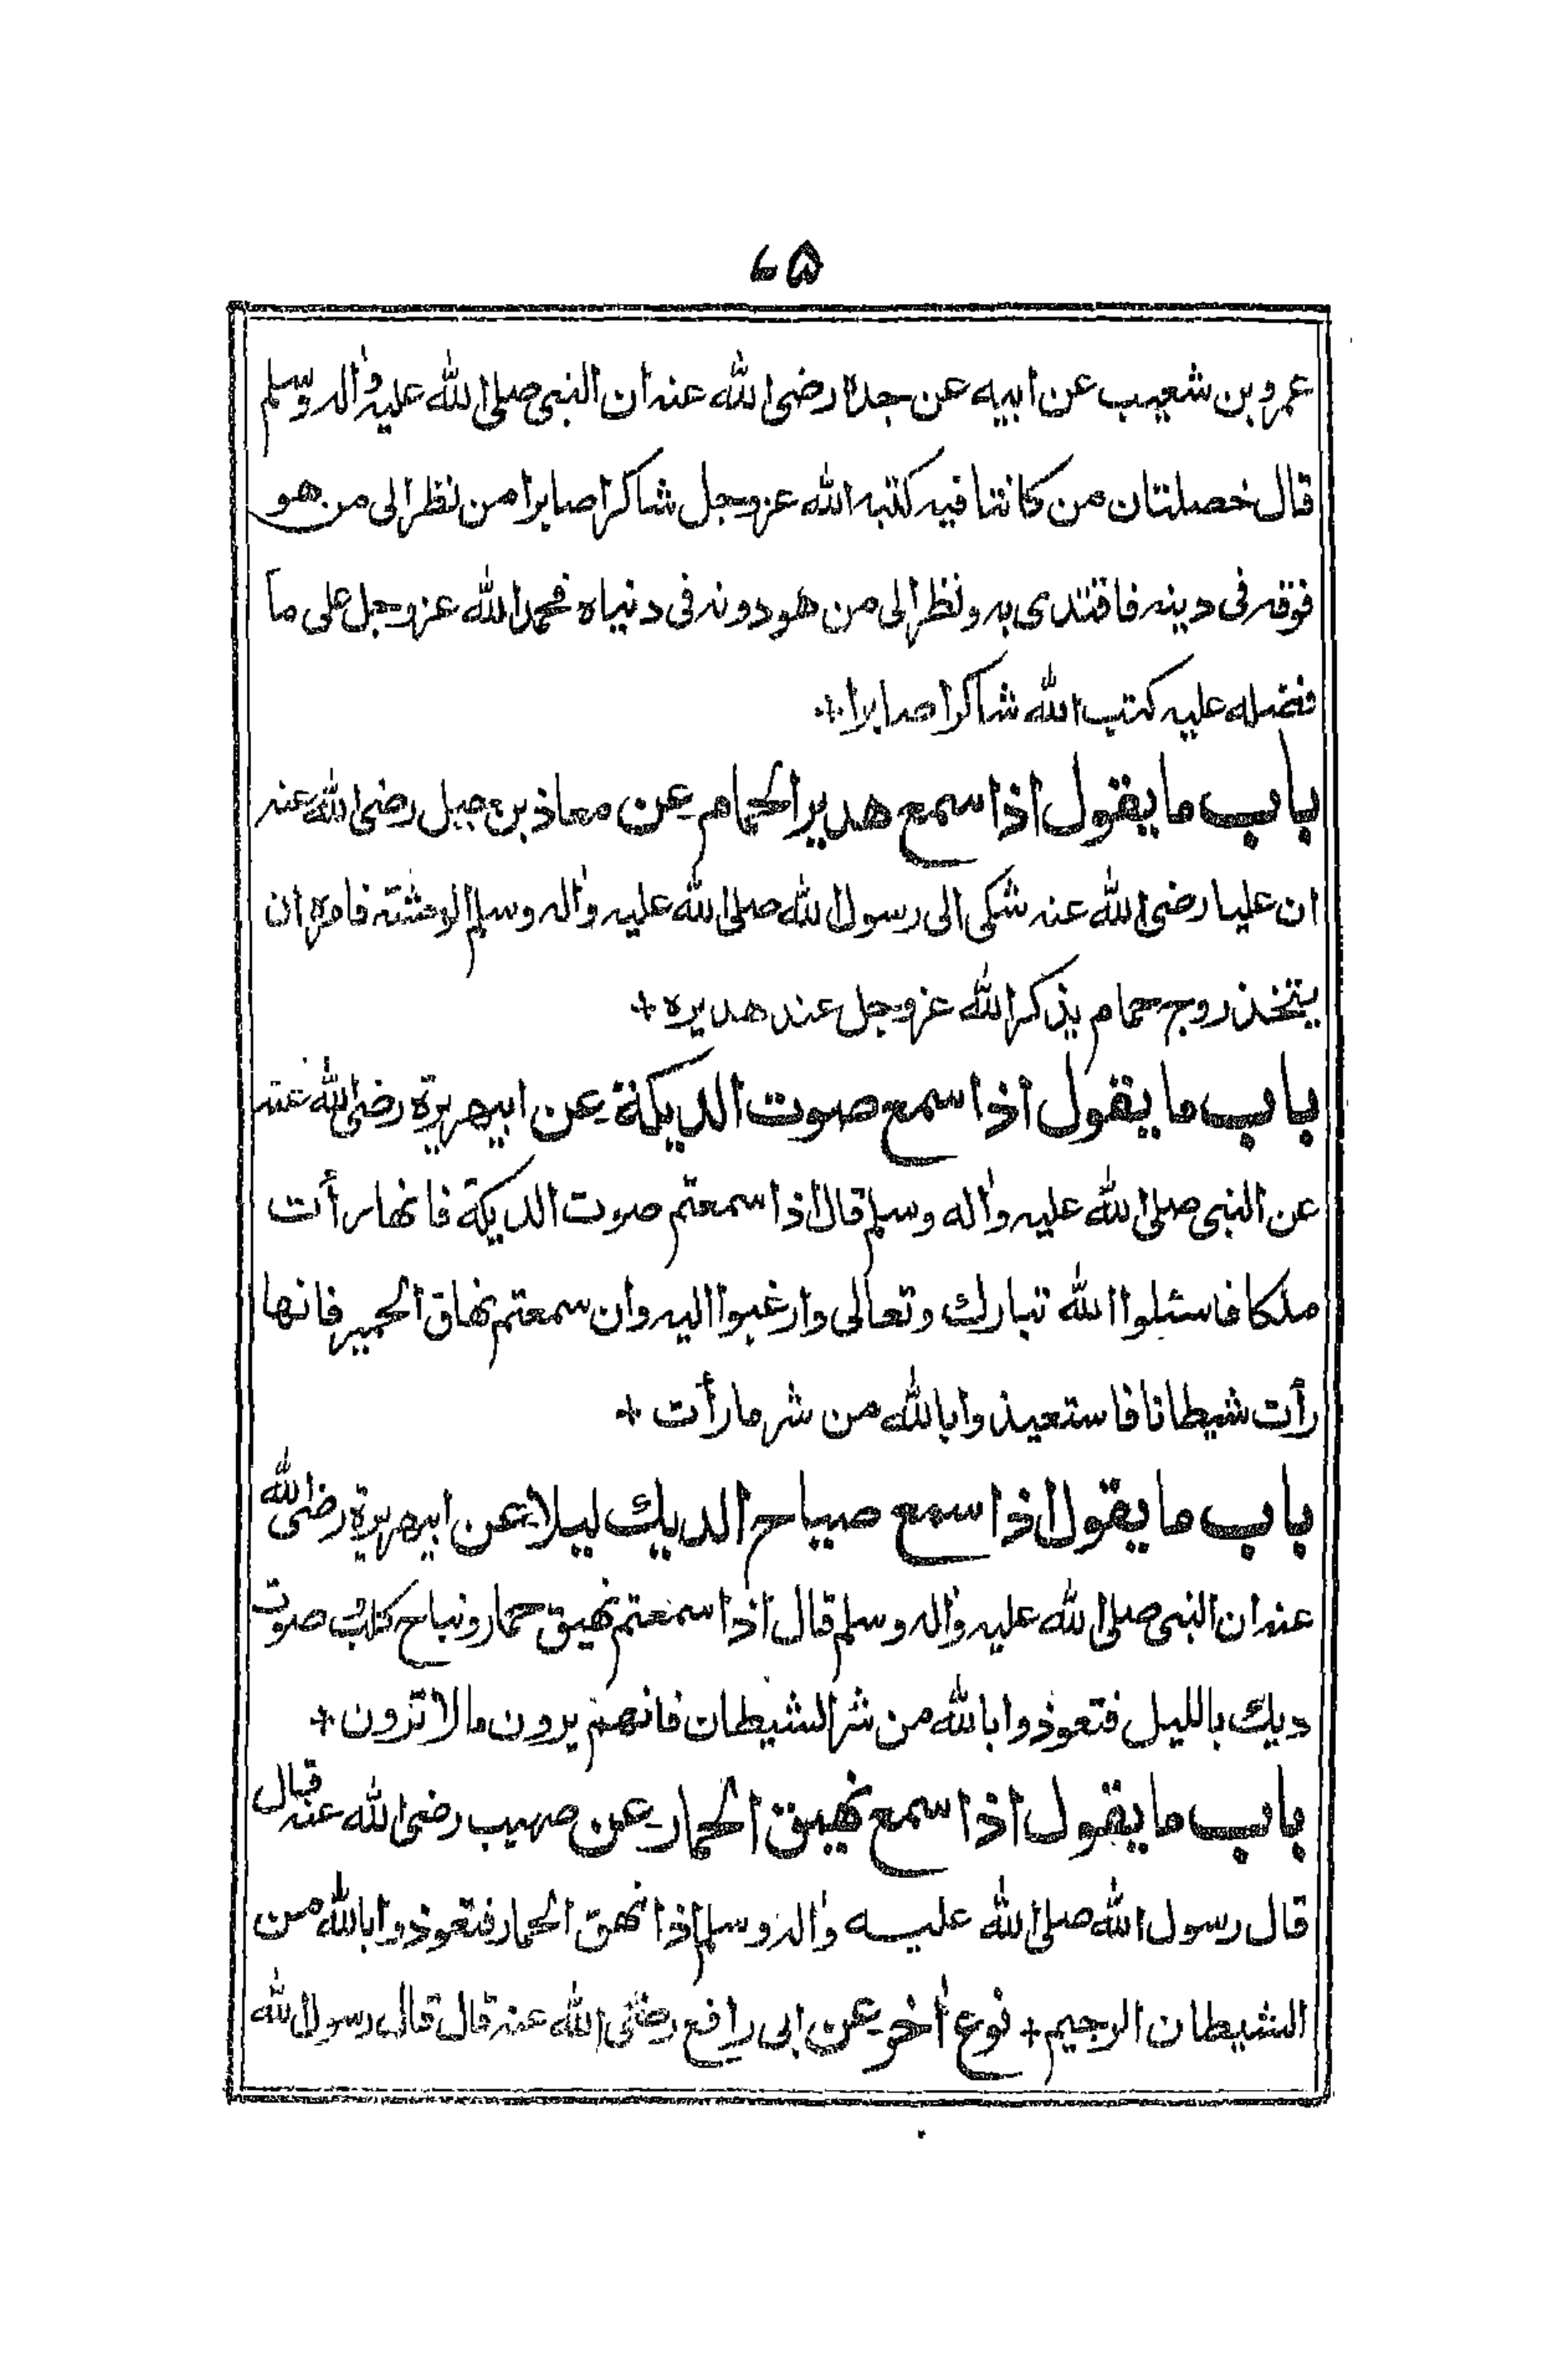 ۶۵
عمرو بن شعيب عن ابيه عن جده رضى الله عنه ان النبى صلى الله عليه واٰله وسلم
قال خصلتان من كانتا فيه كتبه الله عزوجل شاكرا صابرا من نظر الى من هو
فوقه فى دينه فاقتدى به ونظر الى من هو دونه فى دنياه فحمد الله عزوجل على ما
فضله عليه كتب الله شاكرا صابرا +
باب ما يقول اذا سمع هدير الحمام عن معاذ بن جبل رضى الله عنه
ان عليا رضى الله عنه شكى الى رسول الله صلى الله عليه واٰله وسلم الوحشة فامره ان
يتخذ زوج حمام يذكر الله عزوجل عند هديره +
باب ما يقول اذا سمع صوت الديكة عن ابيهريرة رضى الله عنه
عن النبى صلى الله عليه واٰله وسلم قال اذا سمعتم صوت الديكة فانها رأت
ملكا فاسئلوا الله تبارك وتعالى وارغبوا اليه وان سمعتم نهاق الحمير فانها
رأت شيطانا فاستعيذوا بالله من شر ما رأت +
باب ما يقول اذا سمع صياح الديك ليلا عن ابيهريرة رضى الله
عنه ان النبى صلى الله عليه واٰله وسلم قال اذا سمعتم نهيق حمار ونباح كلب صوت
ديك بالليل فتعوذوا بالله من شر الشيطان فانهم يرون ما لا ترون +
باب ما يقول اذا سمع نهيق الحمار عن صهيب رضى الله عنه قال
قال رسول الله صلى الله عليه واٰله وسلم اذا نهق الحمار فتعوذوا بالله من
الشيطان الرجيم + نوع اٰخر عن ابى رافع رضى الله عنه قال قال رسول الله